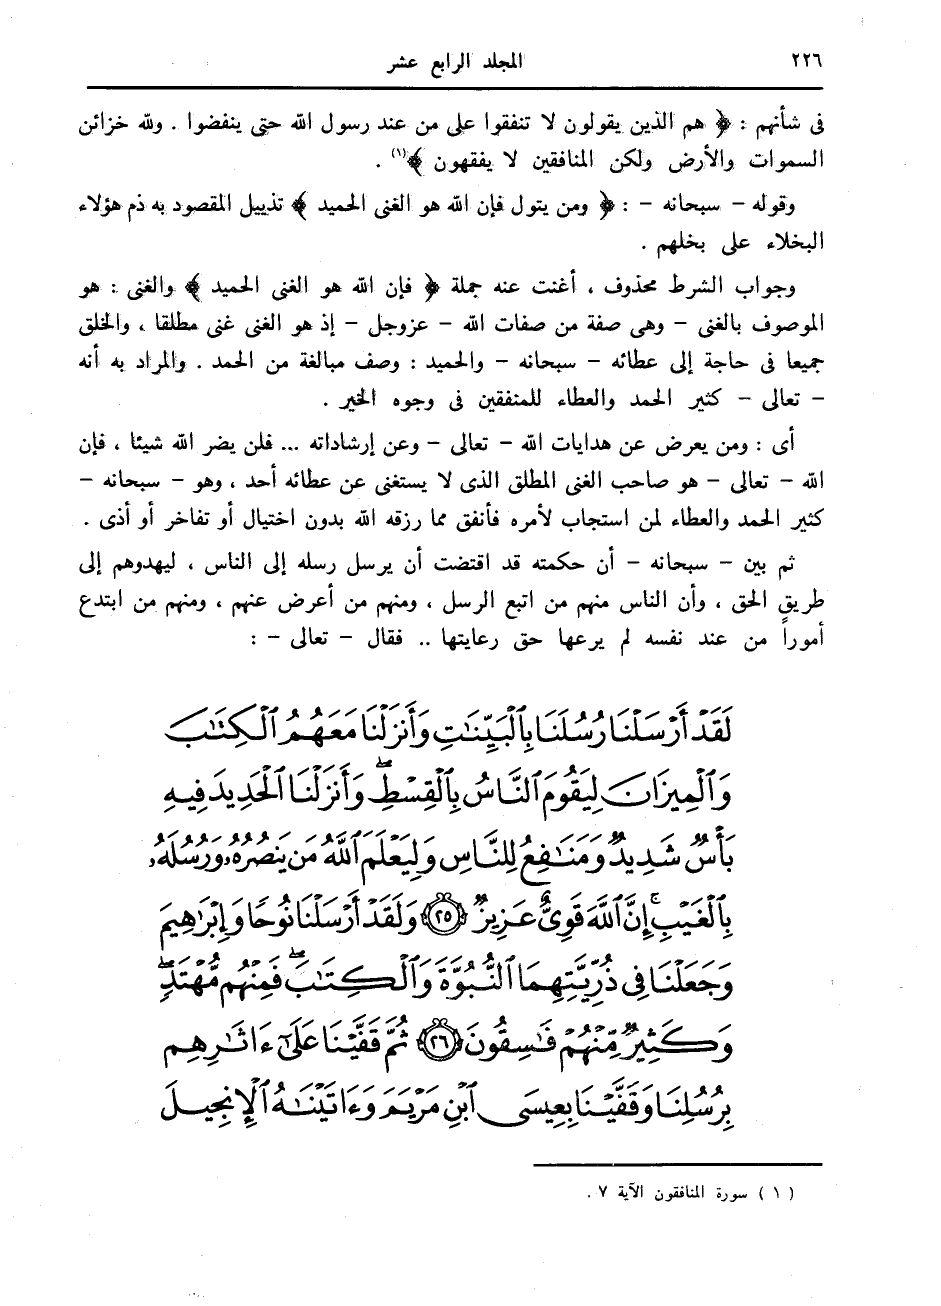 ٢٢٦
المجلد الرابع عشر
فى شأنهم : ﴿ هم الذين يقولون لا تنفقوا على من عند رسول الله حتى ينفضوا . ولله خزائن
السموات والأرض ولكن المنافقين لا يفقهون ﴾(١) .
وقوله – سبحانه – : ﴿ ومن يتول فإن الله هو الغنى الحميد ﴾ تذييل المقصود به ذم هؤلاء
البخلاء على بخلهم .
وجواب الشرط محذوف ، أغنت عنه جملة ﴿ فإن الله هو الغنى الحميد ﴾ والغنى : هو
الموصوف بالغنى – وهى صفة من صفات الله – عزوجل – إذ هو الغنى غنى مطلقا ، والخلق
جميعا فى حاجة إلى عطائه – سبحانه – والحميد : وصف مبالغة من الحمد . والمراد به أنه
– تعالى – كثير الحمد والعطاء للمنفقين فى وجوه الخير .
أى : ومن يعرض عن هدايات الله – تعالى – وعن إرشاداته ... فلن يضر الله شيئا ، فإن
الله – تعالى – هو صاحب الغنى المطلق الذى لا يستغنى عن عطائه أحد ، وهو – سبحانه –
كثير الحمد والعطاء لمن استجاب لأمره فأنفق مما رزقه الله بدون اختيال أو تفاخر أو أذى .
ثم بين – سبحانه – أن حكمته قد اقتضت أن يرسل رسله إلى الناس ، ليهدوهم إلى
طريق الحق ، وأن الناس منهم من اتبع الرسل ، ومنهم من أعرض عنهم ، ومنهم من ابتدع
أموراً من عند نفسه لم يرعها حق رعايتها .. فقال – تعالى – :
لَقَدْ أَرْسَلْنَا رُسُلَنَا بِٱلْبَيِّنَٰتِ وَأَنزَلْنَا مَعَهُمُ ٱلْكِتَٰبَ
وَٱلْمِيزَانَ لِيَقُومَ ٱلنَّاسُ بِٱلْقِسْطِۖ وَأَنزَلْنَا ٱلْحَدِيدَ فِيهِ
بَأْسٌ شَدِيدٌ وَمَنَٰفِعُ لِلنَّاسِ وَلِيَعْلَمَ ٱللَّهُ مَن يَنصُرُهُۥ وَرُسُلَهُۥ
بِٱلْغَيْبِۚ إِنَّ ٱللَّهَ قَوِىٌّ عَزِيزٌ ٢٥ وَلَقَدْ أَرْسَلْنَا نُوحًا وَإِبْرَٰهِيمَ
وَجَعَلْنَا فِى ذُرِّيَّتِهِمَا ٱلنُّبُوَّةَ وَٱلْكِتَٰبَۖ فَمِنْهُم مُّهْتَدٍۖ
وَكَثِيرٌ مِّنْهُمْ فَٰسِقُونَ ٢٦ ثُمَّ قَفَّيْنَا عَلَىٰٓ ءَاثَٰرِهِم
بِرُسُلِنَا وَقَفَّيْنَا بِعِيسَى ٱبْنِ مَرْيَمَ وَءَاتَيْنَٰهُ ٱلْإِنجِيلَ
( ١ ) سورة المنافقون الآية ٧ .